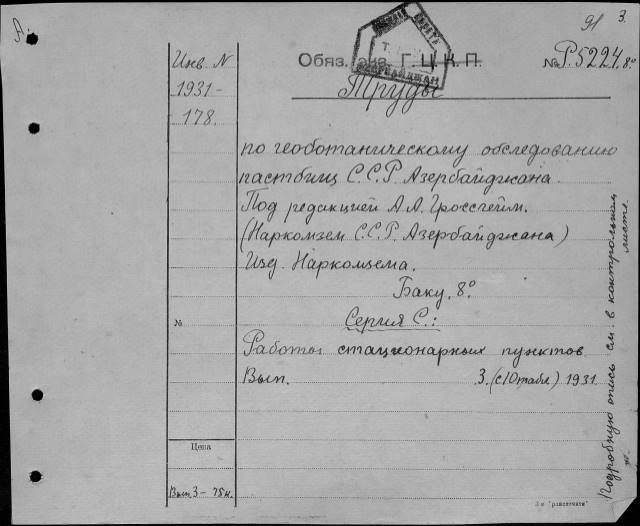 91 3.
Инв. N
1931-
178.
Обяз. экз. Г.Ц.К.П.
№ Р.5224.8°
АЗЕРБАЙДЖАН
Труды
по геоботаническому обследованию
пастбищ С.С.Р. Азербайджана.
Под редакцией А.А. Гроссгейм.
(Наркомзем С.С.Р. Азербайджана)
Изд. Наркомзема.
Баку. 8°
№
Серия С.:
Работы стационарных пунктов
Вып. 3. (с 10 табл) 1931.
Цена
Вып. 3 – 75 к.
Подробную опись см. в контрольном
листе.